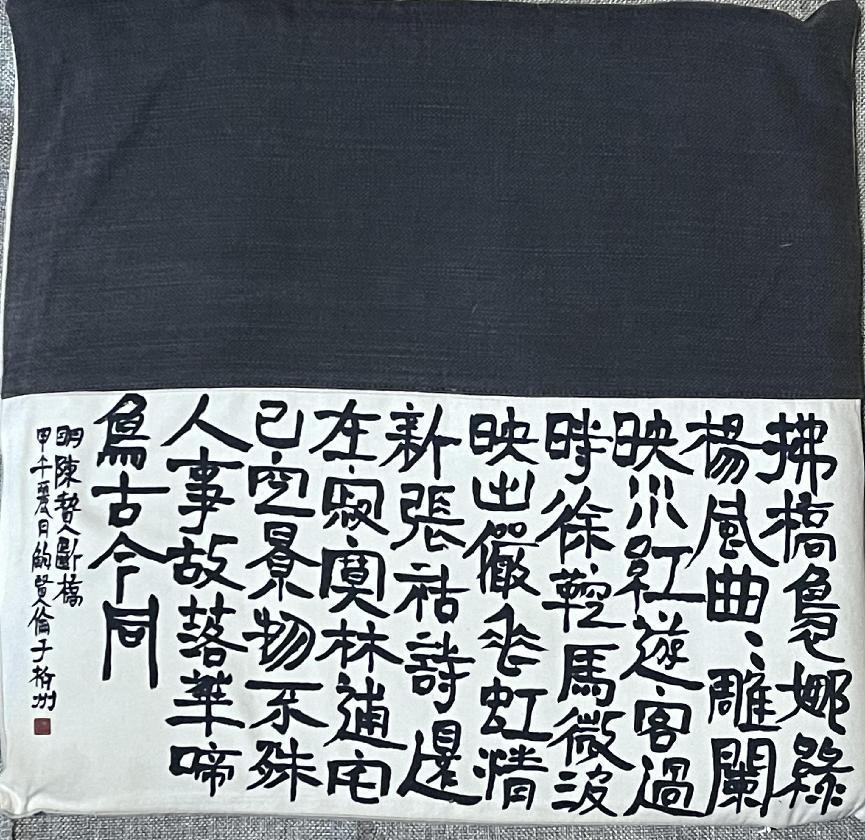 拂橋裊娜綠
楊風曲、雕闌
映水紅遊客過
時徐鞚馬微波
映出儼垂虹清
新張祜詩還
在寂寞林逋宅
已空景物不殊
人事故落華啼
鳥古今同
明陳贄斷橋
甲午夏月賢倫于杭州